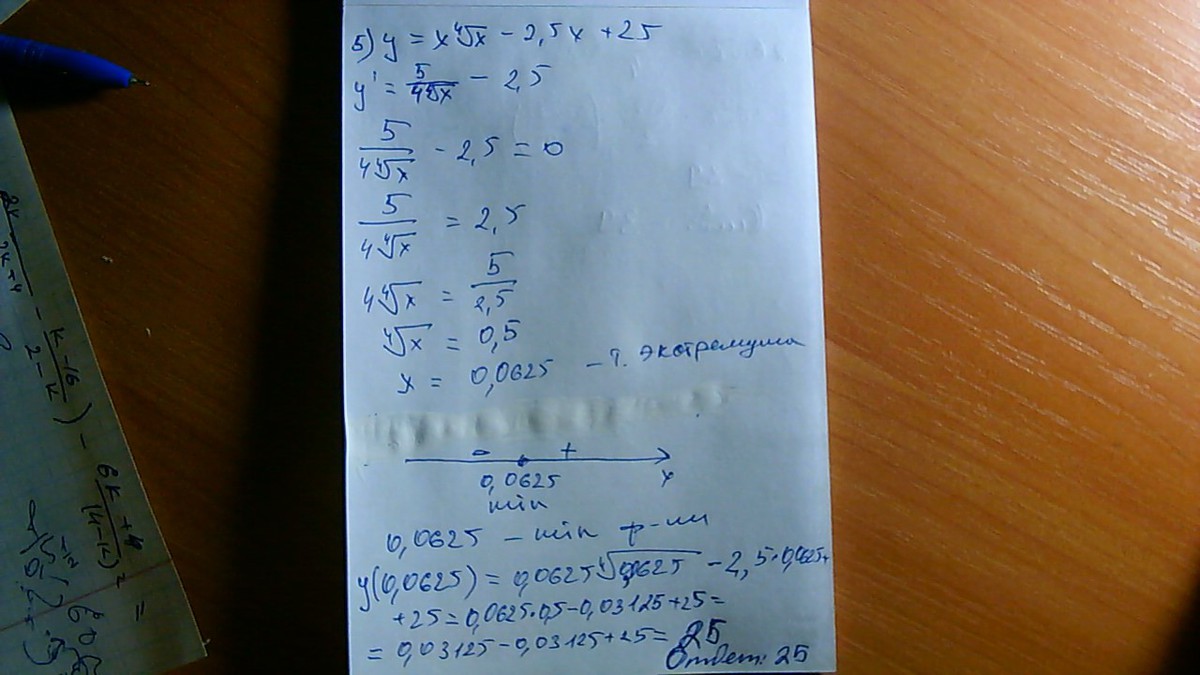 5) y = x⁴√x - 2,5x + 25
y' = 5/(4⁴√x) - 2,5
5/(4⁴√x) - 2,5 = 0
5/(4⁴√x) = 2,5
4⁴√x = 5/2,5
⁴√x = 0,5
x = 0,0625 - т. экстремума
- +
0,0625 x
min
0,0625 - min ф-ии
y(0,0625) = 0,0625⁴√0,0625 - 2,5·0,0625+
+25 = 0,0625·0,5-0,03125+25=
= 0,03125-0,03125+25= 25
Ответ: 25
k-16/2-k) - 6k+4/(4-k)² =